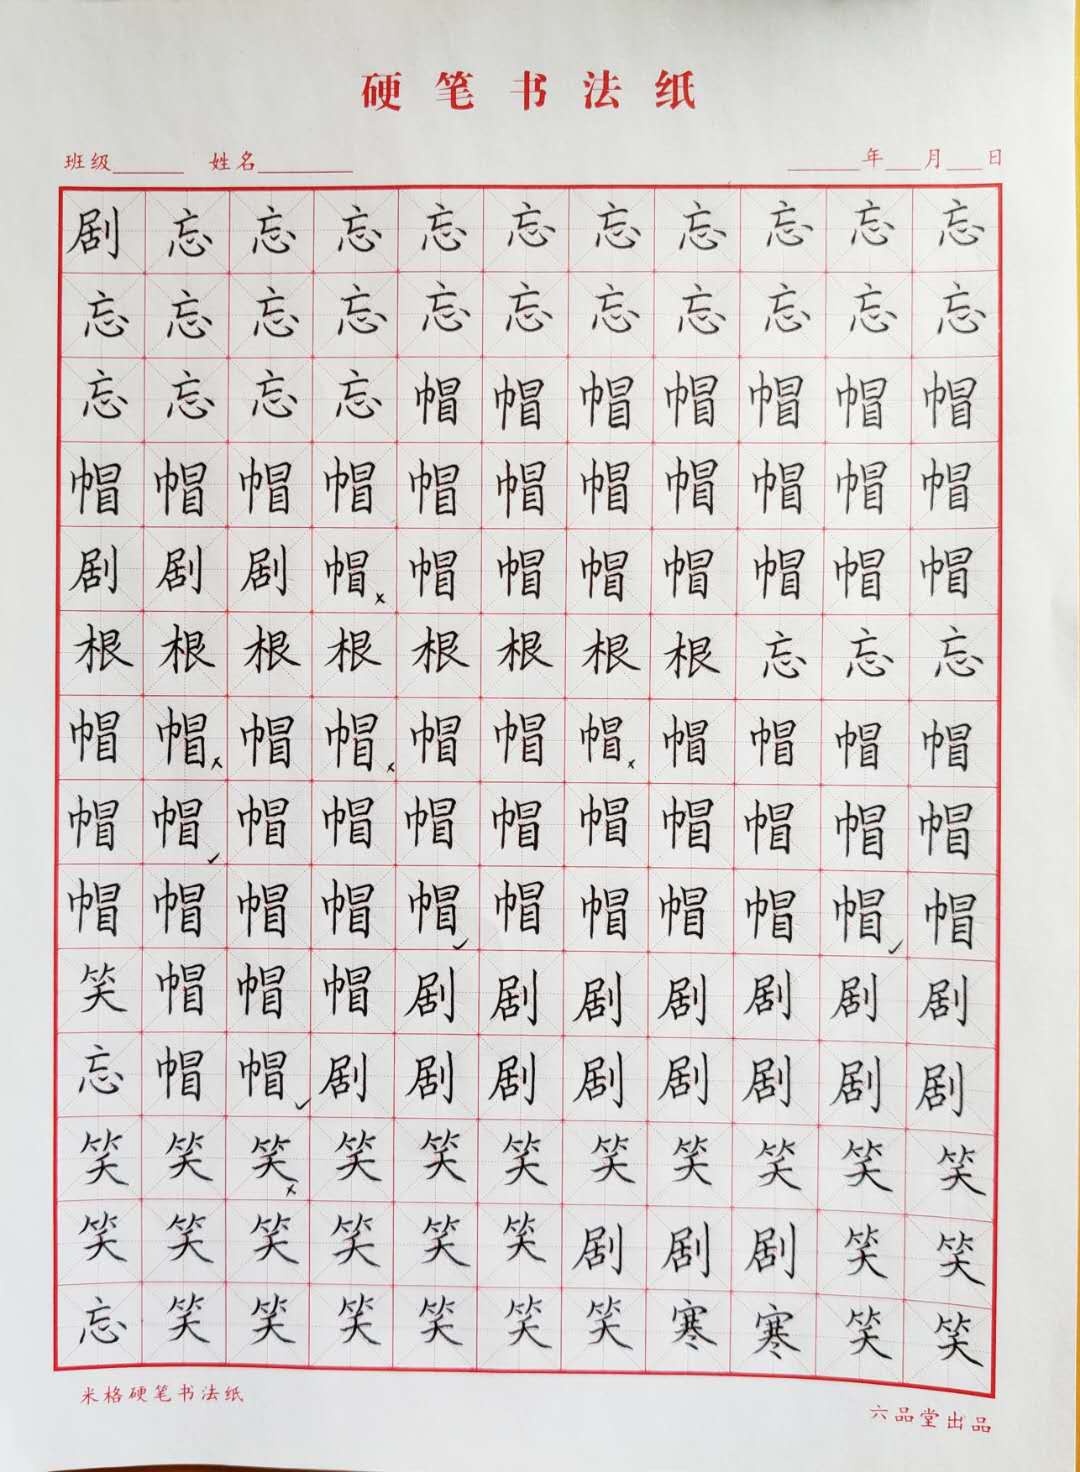 硬笔书法纸
班级 姓名 年 月 日
剧忘忘忘忘忘忘忘忘忘忘
忘忘忘忘忘忘忘忘忘忘忘
忘忘忘忘帽帽帽帽帽帽帽
帽帽帽帽帽帽帽帽帽帽帽
剧剧剧帽帽帽帽帽帽帽帽
根根根根根根根根忘忘忘
帽帽帽帽帽帽帽帽帽帽帽
帽帽帽帽帽帽帽帽帽帽帽
帽帽帽帽帽帽帽帽帽帽帽
笑帽帽帽剧剧剧剧剧剧剧
忘帽帽剧剧剧剧剧剧剧剧
笑笑笑笑笑笑笑笑笑笑笑
笑笑笑笑笑笑剧剧剧笑笑
忘笑笑笑笑笑笑寒寒笑笑
米格硬笔书法纸 六品堂出品